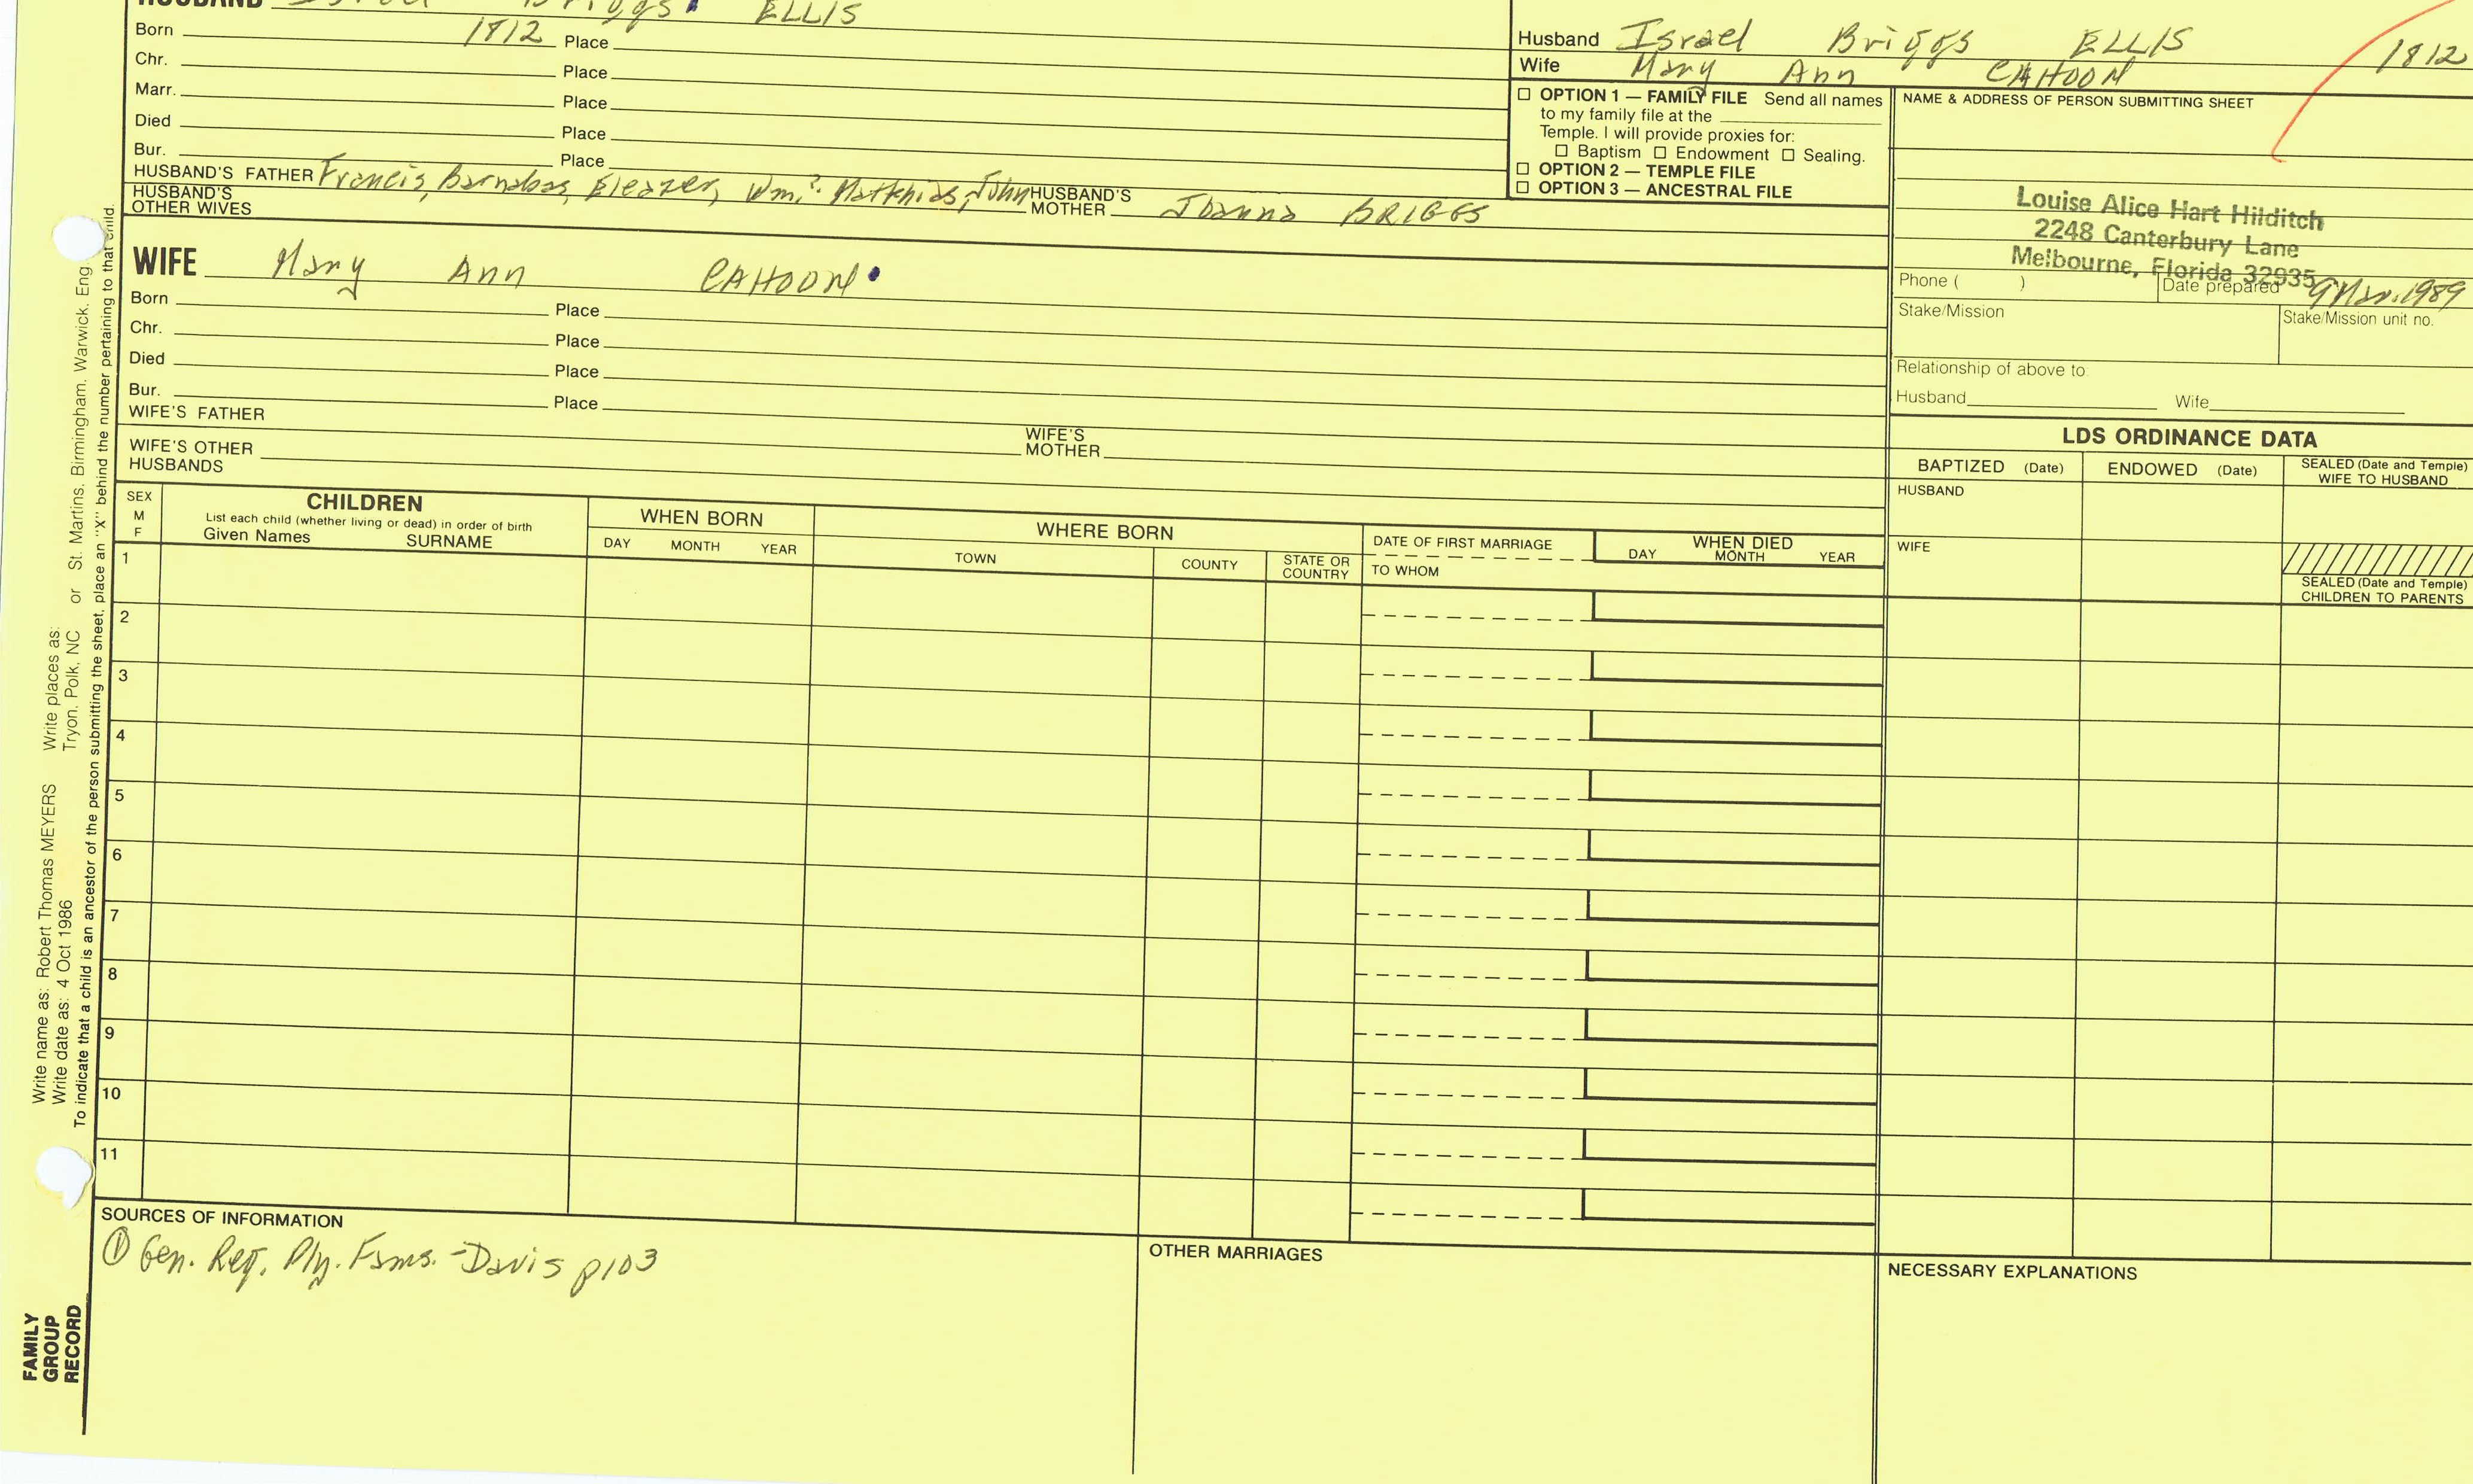 HUSBAND Israel Briggs ELLIS
Born 1812 Place
Chr. Place
Marr. Place
Died Place
Bur. Place
HUSBAND'S FATHER Francis, Barnabas, Eleazer, Wm.? Matthias, John HUSBAND'S MOTHER Joanna BRIGGS
HUSBAND'S OTHER WIVES
WIFE Mary Ann CAHOON
Born Place
Chr. Place
Died Place
Bur. Place
WIFE'S FATHER
WIFE'S MOTHER
WIFE'S OTHER HUSBANDS
Husband Israel Briggs ELLIS 1812
Wife Mary Ann CAHOON
☐ OPTION 1 — FAMILY FILE Send all names
to my family file at the
Temple. I will provide proxies for:
☐ Baptism ☐ Endowment ☐ Sealing.
☐ OPTION 2 — TEMPLE FILE
☐ OPTION 3 — ANCESTRAL FILE
NAME & ADDRESS OF PERSON SUBMITTING SHEET
Louise Alice Hart Hilditch
2248 Canterbury Lane
Melbourne, Florida 32935
Phone ( ) Date prepared 9 Mar. 1989
Stake/Mission Stake/Mission unit no.
Relationship of above to:
Husband Wife
LDS ORDINANCE DATA
BAPTIZED (Date) ENDOWED (Date) SEALED (Date and Temple)
WIFE TO HUSBAND
HUSBAND
WIFE
SEALED (Date and Temple)
CHILDREN TO PARENTS
SEX
M
F
CHILDREN
List each child (whether living or dead) in order of birth
Given Names SURNAME
WHEN BORN
DAY MONTH YEAR
WHERE BORN
TOWN COUNTY STATE OR COUNTRY
DATE OF FIRST MARRIAGE
TO WHOM
WHEN DIED
DAY MONTH YEAR
1
2
3
4
5
6
7
8
9
10
11
SOURCES OF INFORMATION
① Gen. Reg. Ply. Fams. - Davis p103
OTHER MARRIAGES
NECESSARY EXPLANATIONS
Write name as: Robert Thomas MEYERS Write places as:
Write date as: 4 Oct 1986 Tryon, Polk, NC or St. Martins, Birmingham, Warwick, Eng.
To indicate that a child is an ancestor of the person submitting the sheet, place an "X" behind the number pertaining to that child.
FAMILY
GROUP
RECORD